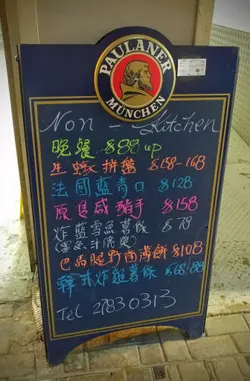 PAULANER
MÜNCHEN
Non - Kitchen
晚餐 $88 up
生蠔拼盤 $158-168
法國藍青口 $128
原隻咸豬手 $158
炸藍雪魚薯條 $78
巴馬腿野西 $108
炸雞薯條 $68/88
Tel 27830313